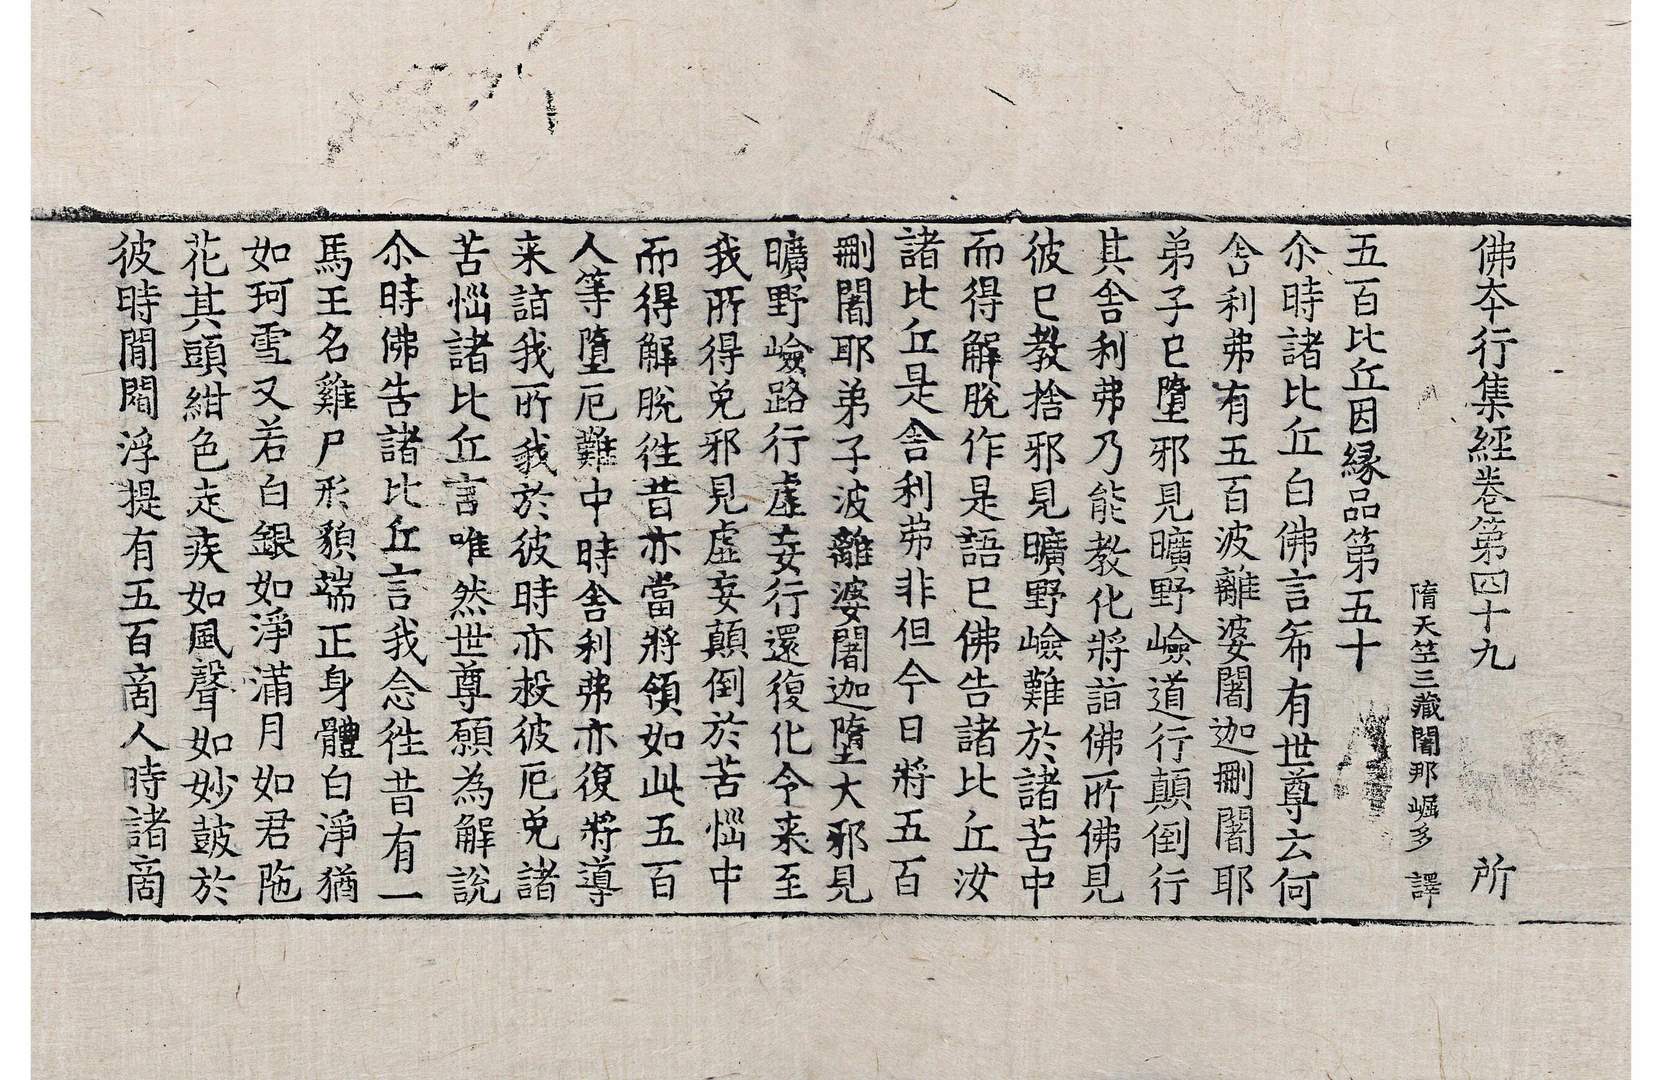 佛本行集經卷第四十九 所
隋天竺三藏闍那崛多 譯
五百比丘因緣品第五十
尒時諸比丘白佛言希有世尊云何
舍利弗有五百波離婆闍迦刪闍耶
弟子已墮邪見曠野嶮道行顛倒行
其舍利弗乃能教化將詣佛所佛見
彼已教捨邪見曠野嶮難於諸苦中
而得解脫作是語已佛告諸比丘汝
諸比丘是舍利弗非但今日將五百
刪闍耶弟子波離婆闍迦墮大邪見
曠野嶮路行虛妄行還復化令来至
我所得免邪見虛妄顛倒於苦惱中
而得解脫徃昔亦當將領如此五百
人等墮厄難中時舍利弗亦復將導
来詣我所我於彼時亦拯彼厄免諸
苦惱諸比丘言唯然世尊願為解說
尒時佛告諸比丘言我念徃昔有一
馬王名雞尸形貌端正身體白淨猶
如珂雪又若白銀如淨滿月如君陁
花其頭紺色走疾如風聲如妙鼓於
彼時間閻浮提有五百商人時諸商